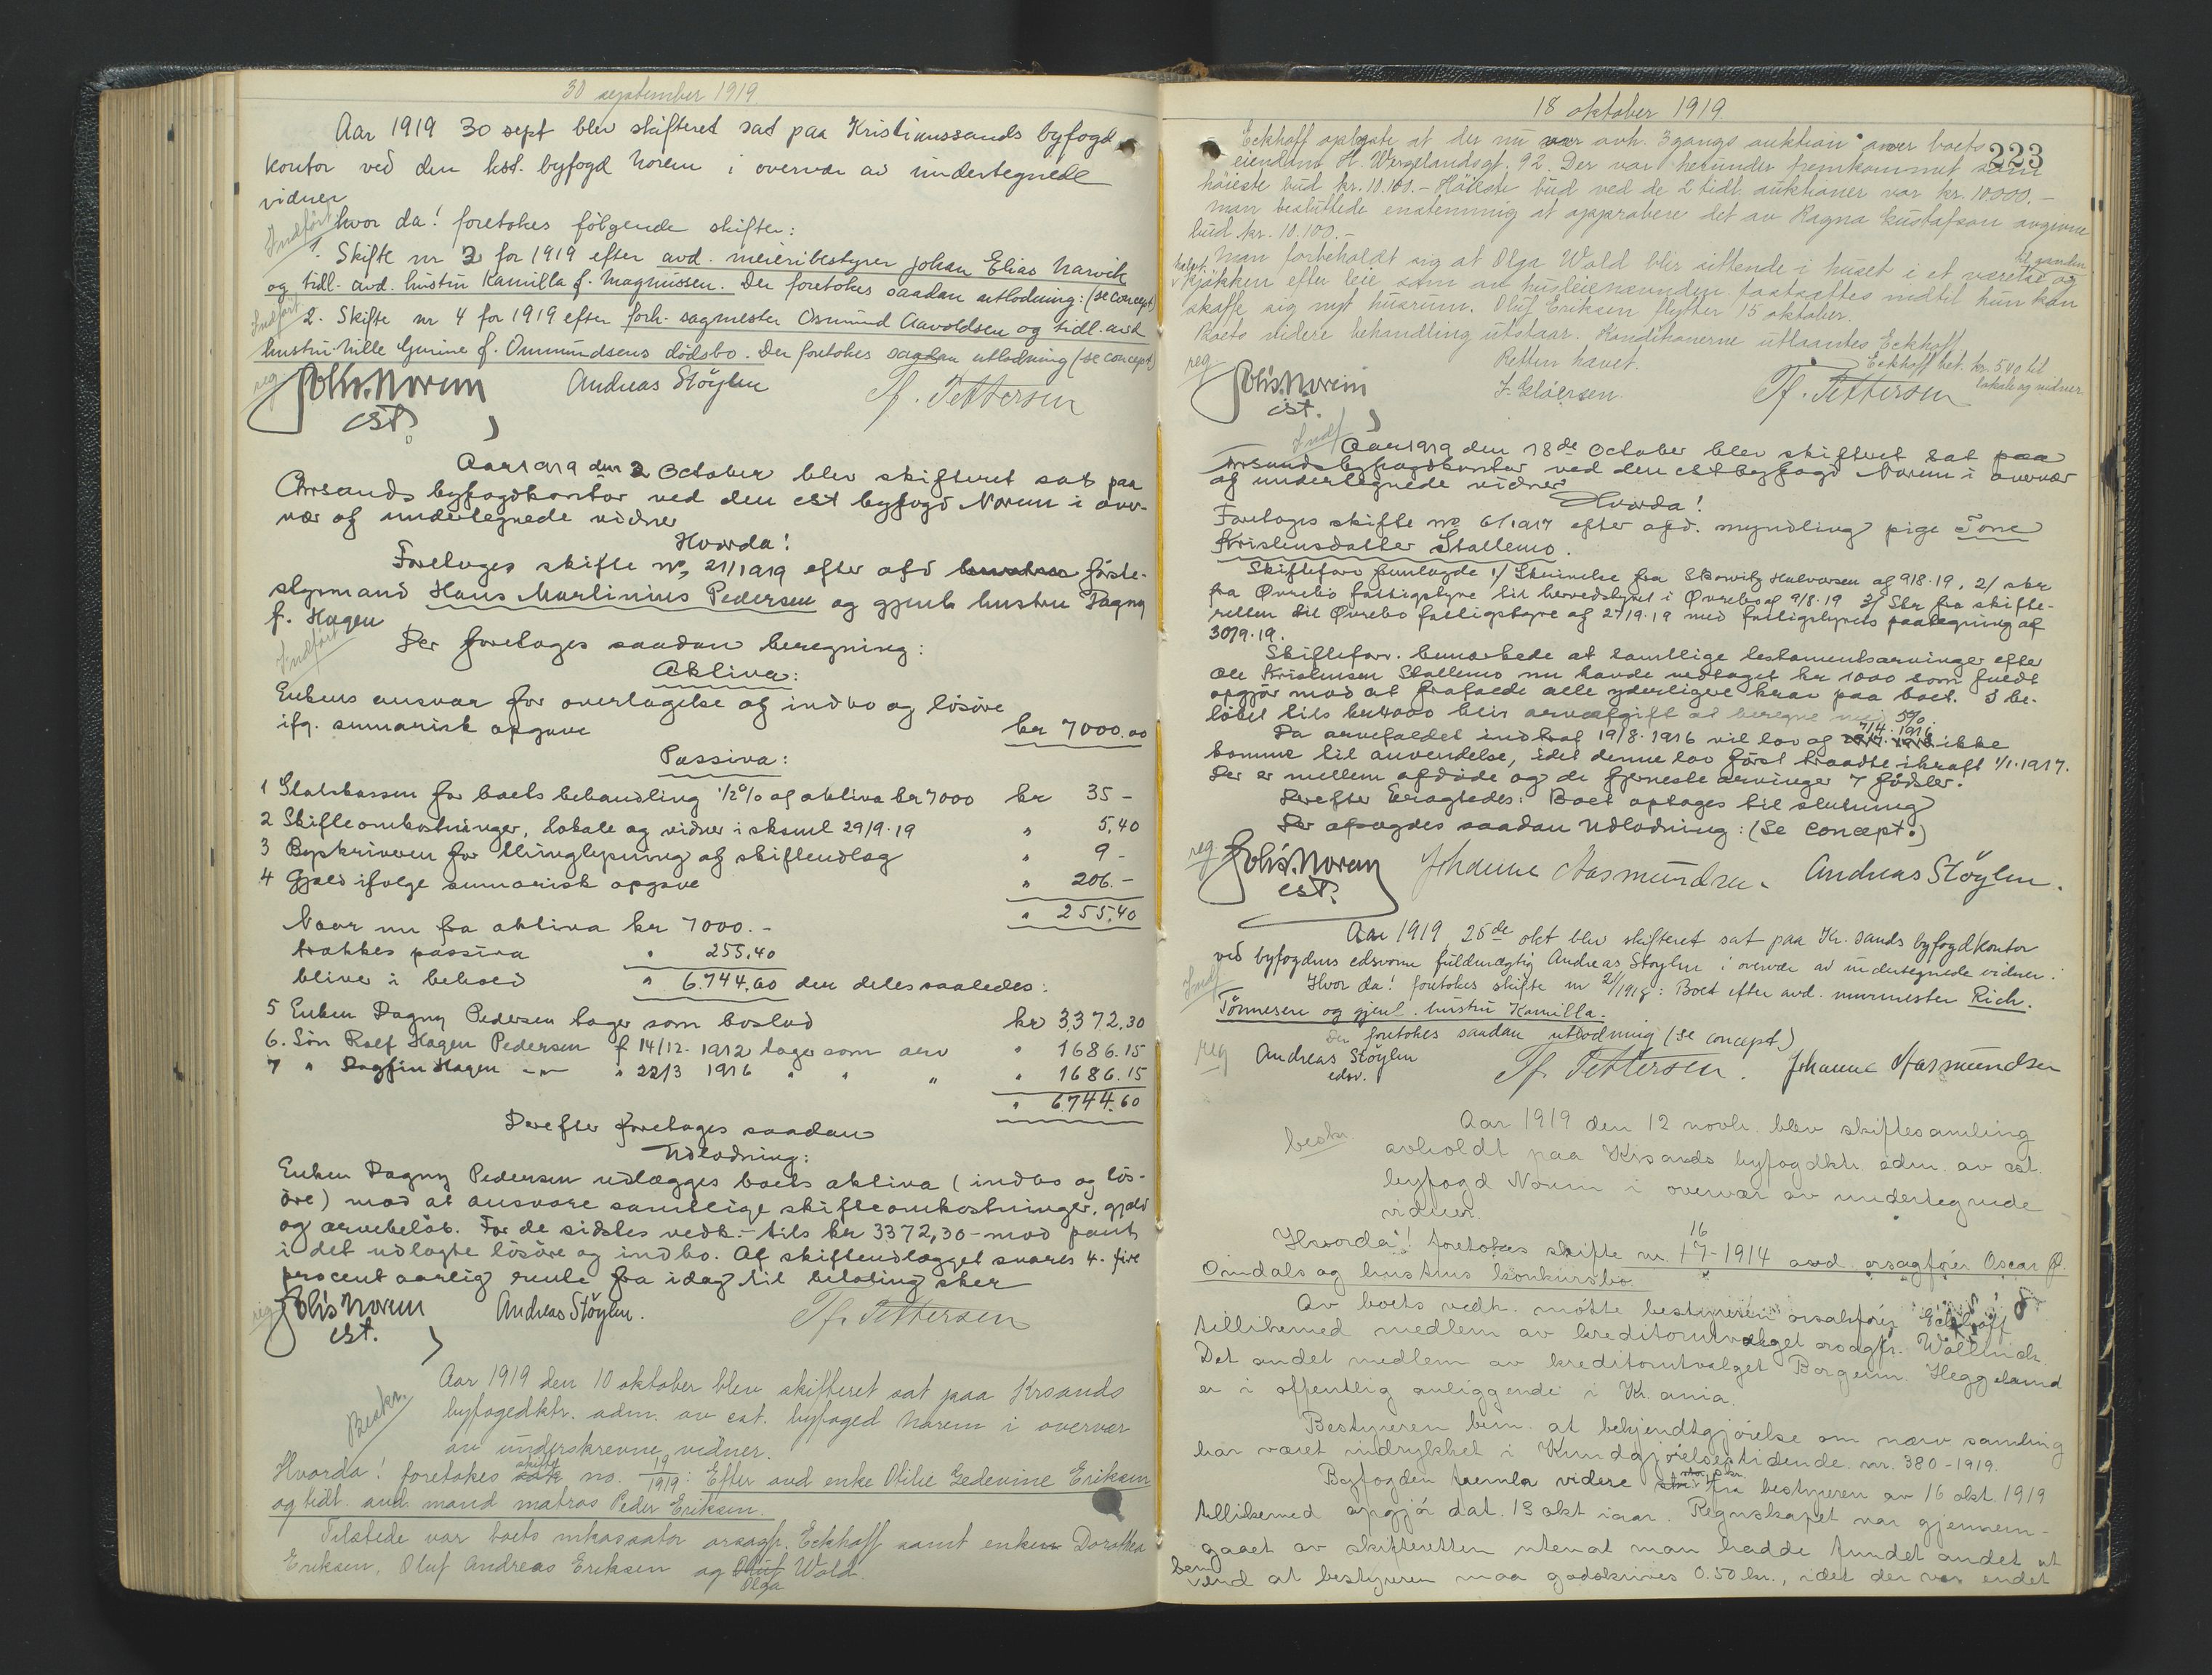 30 september 1919
Aar 1919 30 sept blev skifteret sat paa Kristianssands byfogd
kontor ved den kst. byfogd Norem i overvær av undertegnede
vidner
Indført
hvor da! foretokes følgende skifter:
1. Skifte nr 3 for 1919 efter avd. meieribestyrer Johan Elias Narvik
og tidl. avd. hustru Kamilla f. Magnussen. Der foretokes saadan utlodning: (se concept)
Indført
2. Skifte nr 4 for 1919 efter forh. sagmester Osmund Aavoldsen og tidl. avd
hustru Nille Gurine f. Ommundsens dødsbo. Der foretokes saadan utlodning (se concept)
reg.
Johs. Norem Andreas Støylen Tf. Pettersen
cst.
Aar 1919 den 2 October blev skifteret sat paa
Chrsands byfogdkontor ved den cst byfogd Norem i over-
vær af undertegnede vidner
Hvorda!
Foretages skifte no, 21/1919 efter afd første-
styrmand Hans Martinius Pedersen og gjenl hustru Dagny
f. Hagen
Indført
Der foretages saadan beregning:
Aktiva:
Enkens ansvar for overtagelse af indbo og løsøre
ifg. summarisk opgave kr 7000.00
Passiva:
1 Statskassen for boets behandling 1/2% af aktiva kr 7000 kr 35 -
2 Skifteomkostninger, lokale og vidner i sksml 29/9.19 " 5,40
3 Byskriveren for thinglysning af skifteudlæg " 9 -
4 Gjæld ifølge summarisk opgave " 206.-
" 255,40
Naar nu fra aktiva kr 7000.-
trækkes passiva " 255,40
bliver i behold " 6.744,60 der deles saaledes:
5 Enken Dagny Pedersen tager som boslod kr 3372,30
6. Søn Rolf Hagen Pedersen f 14/12. 1912 tager som arv " 1686.15
7 " Dagfin Hagen -"- " 22/3 1916 " " " " 1686.15
" 6744.60
Derefter foretages saadan
Udlodning:
Enken Dagny Pedersen udlægges boets aktiva (indbo og løs-
øre) mod at ansvare samtlige skifteomkostninger, gjæld
og arvebeløb. For de sidstes vedk.- tils kr 3372,30 - mod pant
i det udlagte løsøre og indbo. Af skifteudlægget svares 4. fire
procent aarlig rente fra idag til betaling sker
reg
Johs Norem Andreas Støylen. Tf. Pettersen
cst.
Beskr.
Aar 1919 den 10 oktober blev skifteret sat paa Krsands
byfogedktr. adm. av cst. byfoged Norem i overvær
av underskrevne vidner.
Hvorda! foretokes skifte no. 19/1919: Efter avd enke Otilie Gedevine Eriksen
og tidl. avd. mand matros Peder Eriksen.
Tilstede var boets inkassator orsagf. Eckhoff samt enken Dorothea
Eriksen, Oluf Andreas Eriksen og Olga Wold.
18 oktober 1919.
223
Eckhoff oplyste at der nu var avh. 3 gangs auktion over boets
eiendom H. Wergelandsgt. 92. Der var herunder fremkommet som
høieste bud kr. 10.100.- Høieste bud ved de 2 tidl. auktioner var kr. 10000.-
Man besluttede enstemmig at approbere det av Ragna Gustafson avgivne
bud kr. 10.100.-
Man forbeholdt sig at Olga Wold blir sittende i huset i et værelse og
kjøkken efter leie som av husleienævnden fastsættes indtil hun kan
skaffe sig nyt husrum. Oluf Eriksen flytter 15 oktober.
Boets videre behandling utstaar. Konditionerne utlaantes Eckhoff.
Retten hævet. Eckhoff bet. kr. 5,40 til
lokale og vidner
reg
Johs. Norem Tf. Pettersen
cst.
Indf
Aar 1919 den 18de October blev skifteret sat paa
Krsands byfogdkontor ved den cst byfogd Norem i overvær
af undertegnede vidner
Hvorda!
Foretages skifte no 6/1917 efter afd. myndling pige Tone
Kristensdatter Stallemo.
Skifteforv fremlagde 1/ Skrivelse fra Skowitz Halvorsen af 9/8.19, 2/ skr
fra Øvrebø fattigstyre til herredstyret i Øvrebø af 9/8.19 3/ Skr fra skifte-
retten til Øvrebø fattigstyre af 27/9.19 med fattigstyrets paategning af
30/9.19.
Skifteforv. bemærkede at samtlige testamentsarvinger efter
Ole Kristensen Stallemo nu havde vedtaget kr 1000 som fuldt
opgjør mod at frafalde alle yderligere krav paa boet. I be-
løbet tils kr 4000 blir arveafgift at beregne med 5%.
Da arvefaldet indtraf 19/8.1916 vil lov af 7/4.1916 ikke
komme til anvendelse, idet denne lov først traadte ikraft 1/1.1917.
Der er mellem afdøde og de fjerneste arvinger 7 fødsler.
Derefter Eragtedes: Boet optages til slutning
Der afsagdes saadan Udlodning: (Se Concept.)
reg
Johs. Norem Johanne Aasmundsen. Andreas Støylen.
cst.
Aar 1919 25de okt blev skifteret sat paa Kr.sands byfogdkontor
ved byfogdens edsvorne fuldmægtig Andreas Støylen i overvær av undertegnede vidner.
Indf
Hvor da! foretokes skifte nr 2/1918: Boet efter avd. murmester Rich.
Tønnesen og gjenl. hustru Kamilla.
Der foretokes saadan utlodning (se concept.)
reg
Andreas Støylen Tf. Pettersen. Johanne Aasmundsen
edsv.
beskr.
Aar 1919 den 12 novbr. blev skiftesamling
avholdt paa Krsands byfogdktr. adm. av cst.
byfogd Norem i overvær av undertegnede
vidner.
Hvorda! foretokes skifte nr. 16-1914 avd orsagfører Oscar Ø.
Omdals og hustrus konkursbo.
Av boets vedk. møtte bestyreren orsakfører Eckhoff
tillikemed medlem av kreditorutvalget orsagfr. Wallnick.
Det andet medlem av kreditorutvalget Borgerm. Heggeland
er i offentlig anliggende i Kr.ania.
Bestyreren bem. at bekjendtgjørelse om nærv samling
har været indrykket i Kundgjørelsestidende nr. 380-1919.
Byfogden fremla videre skr. fra bestyreren av 16 okt. 1919
tillikemed opgjør dat. 13 okt iaar. Regnskapet var gjennem-
gaaet av skifteretten uten at man hadde fundet andet at
bem end at bestyreren maa godskrives 0.50 kr., idet der var endet